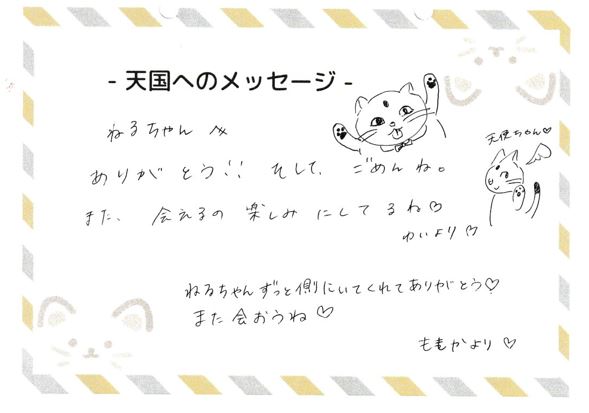 - 天国へのメッセージ -
ねるちゃんへ
ありがとう!! そして、ごめんね。
天使ちゃん♡
また、会えるの楽しみにしてるね♡
めいより♡
ねるちゃんずっと側にいてくれてありがとう♡
また会おうね♡
ももかより♡